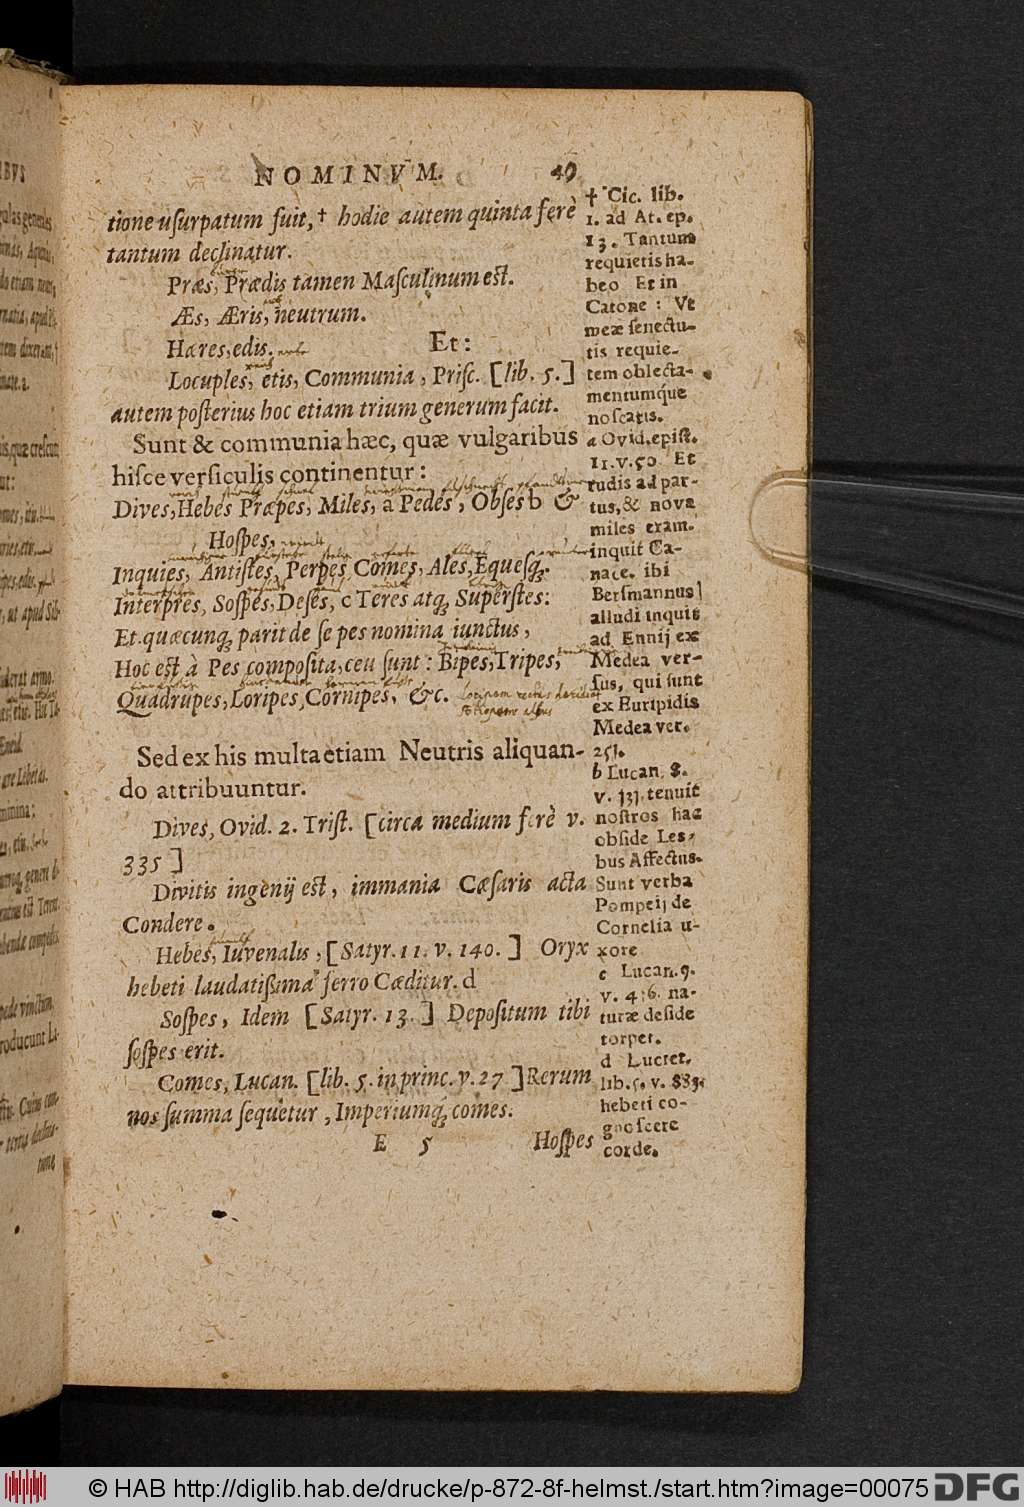 NOMINVM. 49
tione usurpatum fuit,† hodie autem quinta ferè
tantum declinatur.
Præs, Prædis tamen Masculinum est.
Æs, Æris, neutrum.
Hæres, edis. Et:
Locuples, etis, Communia, Prisc. [lib. 5.]
autem posterius hoc etiam trium generum facit.
Sunt & communia hæc, quæ vulgaribus
hisce versiculis continentur:
Dives, Hebes Præpes, Miles, a Pedes, Obses b &
Hospes,
Inquies, Antistes, Perpes, Comes, Ales, Equesq́;.
Interpres, Sospes, Deses, c Teres atq́; Superstes:
Et quæcunq́; parit de se pes nomina iunctus,
Hoc est à Pes composita, ceu sunt: Bipes, Tripes,
Quadrupes, Loripes, Cornipes, &c.
Sed ex his multa etiam Neutris aliquan-
do attribuuntur.
Dives, Ovid. 2. Trist. [circa medium ferè v.
335]
Divitis ingenij est, immania Cæsaris acta
Condere.
Hebes, Iuvenalis, [Satyr. 11. v. 140.] Oryx
hebeti laudatissima ferro Cæditur. d
Sospes, Idem [Satyr. 13.] Depositum tibi
sospes erit.
Comes, Lucan. [lib. 5. in princ. v. 27] Rerum
nos summa sequetur, Imperiumq́; comes.
E 5 Hospes
† Cic. lib.
1. ad At. ep.
13. Tantum
requietis ha-
beo Et in
Catone: Vt
meæ senectu-
tis requie-
tem oblecta-
mentumque
noscatis.
a Ovid. epist.
11. v. 50 Et
rudis ad par-
tus, & nova
miles eram.
inquit Ca-
nace. ibi
Bersmannus
alludi inquit
ad Ennij ex
Medea ver-
sus, qui sunt
ex Euripidis
Medea ver.
251.
b Lucan. 8.
v. 131. tenuit
nostros hac
obside Les-
bus Affectus.
Sunt verba
Pompeij de
Cornelia u-
xore
c Lucan. 9.
v. 436. na-
turæ deside
torpet.
d Lucret.
lib. 5. v. 881.
hebeti co-
gnoscere
corde.
© HAB http://diglib.hab.de/drucke/p-872-8f-helmst./start.htm?image=00075 DFG